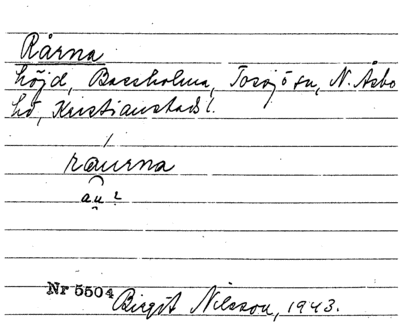 Rårna
höjd, Bassholma, Tosjö sn, N. Åsbo
hd, Kristianstads l.
raurna
au?
Nr 5504
Birgit Nilsson, 1943.